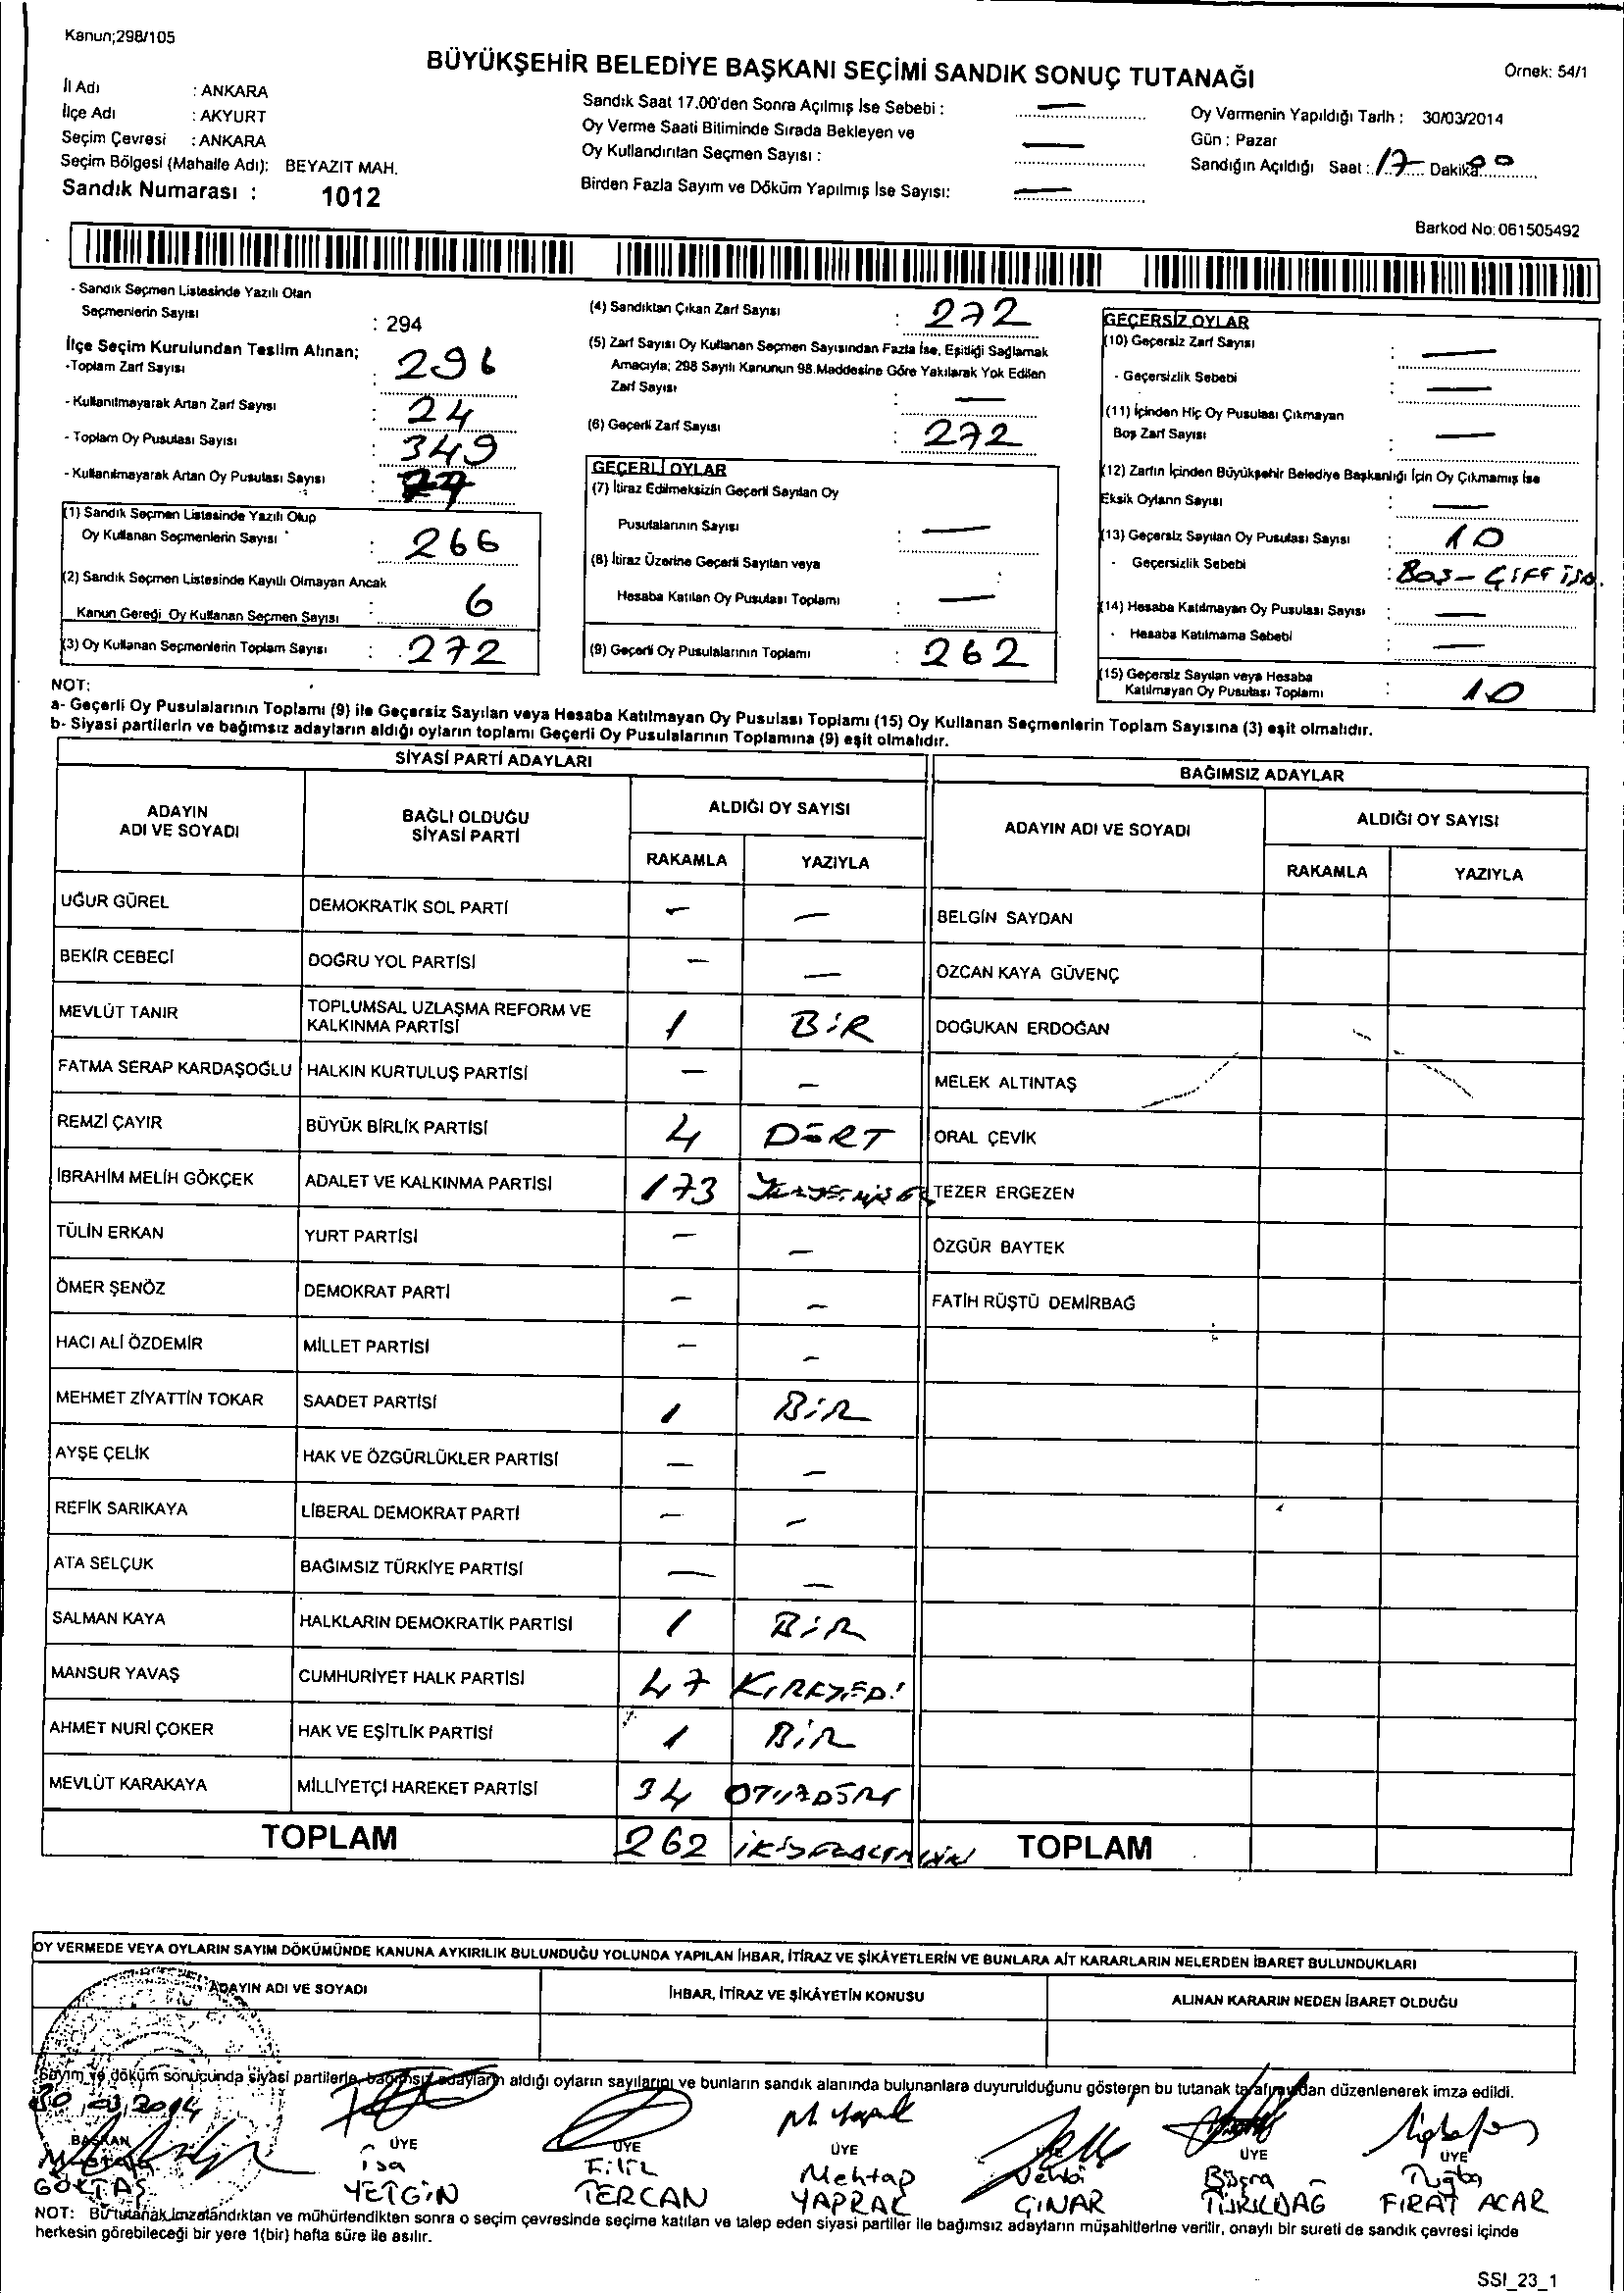 Kanun;298/105
BÜYÜKŞEHİR BELEDİYE BAŞKANI SEÇİMİ SANDIK SONUÇ TUTANAĞI
Örnek: 54/1
İl Adı : ANKARA
İlçe Adı : AKYURT
Seçim Çevresi : ANKARA
Seçim Bölgesi (Mahalle Adı): BEYAZIT MAH.
Sandık Numarası : 1012
Sandık Saat 17.00'den Sonra Açılmış İse Sebebi : —
Oy Verme Saati Bitiminde Sırada Bekleyen ve
Oy Kullandırılan Seçmen Sayısı : —
Birden Fazla Sayım ve Döküm Yapılmış İse Sayısı: —
Oy Vermenin Yapıldığı Tarih : 30/03/2014
Gün : Pazar
Sandığın Açıldığı Saat : 17 Dakika 00
Barkod No: 061505492
- Sandık Seçmen Listesinde Yazılı Olan
Seçmenlerin Sayısı : 294
İlçe Seçim Kurulundan Teslim Alınan;
-Toplam Zarf Sayısı : 296
- Kullanılmayarak Artan Zarf Sayısı : 24
- Toplam Oy Pusulası Sayısı : 349
- Kullanılmayarak Artan Oy Pusulası Sayısı : 77
(1) Sandık Seçmen Listesinde Yazılı Olup
Oy Kullanan Seçmenlerin Sayısı : 266
(2) Sandık Seçmen Listesinde Kayıtlı Olmayan Ancak
Kanun Gereği Oy Kullanan Seçmen Sayısı : 6
(3) Oy Kullanan Seçmenlerin Toplam Sayısı : 272
(4) Sandıktan Çıkan Zarf Sayısı : 272
(5) Zarf Sayısı Oy Kullanan Seçmen Sayısından Fazla İse, Eşitliği Sağlamak
Amacıyla; 298 Sayılı Kanunun 98.Maddesine Göre Yakılarak Yok Edilen
Zarf Sayısı : —
(6) Geçerli Zarf Sayısı : 272
GEÇERLİ OYLAR
(7) İtiraz Edilmeksizin Geçerli Sayılan Oy
Pusulalarının Sayısı : —
(8) İtiraz Üzerine Geçerli Sayılan veya
Hesaba Katılan Oy Pusulası Toplamı : —
(9) Geçerli Oy Pusulalarının Toplamı : 262
GEÇERSİZ OYLAR
(10) Geçersiz Zarf Sayısı : —
- Geçersizlik Sebebi : —
(11) İçinden Hiç Oy Pusulası Çıkmayan
Boş Zarf Sayısı : —
(12) Zarfın İçinden Büyükşehir Belediye Başkanlığı İçin Oy Çıkmamış İse
Eksik Oyların Sayısı : —
(13) Geçersiz Sayılan Oy Pusulası Sayısı : 10
- Geçersizlik Sebebi : BOŞ - ÇİFT
(14) Hesaba Katılmayan Oy Pusulası Sayısı : —
- Hesaba Katılmama Sebebi : —
(15) Geçersiz Sayılan veya Hesaba
Katılmayan Oy Pusulası Toplamı : 10
NOT:
a- Geçerli Oy Pusulalarının Toplamı (9) ile Geçersiz Sayılan veya Hesaba Katılmayan Oy Pusulası Toplamı (15) Oy Kullanan Seçmenlerin Toplam Sayısına (3) eşit olmalıdır.
b- Siyasi partilerin ve bağımsız adayların aldığı oyların toplamı Geçerli Oy Pusulalarının Toplamına (9) eşit olmalıdır.
SİYASİ PARTİ ADAYLARI
BAĞIMSIZ ADAYLAR
ADAYIN ADI VE SOYADI
BAĞLI OLDUĞU SİYASİ PARTİ
ALDIĞI OY SAYISI
RAKAMLA YAZIYLA
ADAYIN ADI VE SOYADI
ALDIĞI OY SAYISI
RAKAMLA YAZIYLA
UĞUR GÜREL DEMOKRATİK SOL PARTİ — — BELGİN SAYDAN
BEKİR CEBECİ DOĞRU YOL PARTİSİ — — ÖZCAN KAYA GÜVENÇ
MEVLÜT TANIR TOPLUMSAL UZLAŞMA REFORM VE KALKINMA PARTİSİ 1 BİR DOĞUKAN ERDOĞAN
FATMA SERAP KARDAŞOĞLU HALKIN KURTULUŞ PARTİSİ — — MELEK ALTINTAŞ
REMZİ ÇAYIR BÜYÜK BİRLİK PARTİSİ 4 DÖRT ORAL ÇEVİK
İBRAHİM MELİH GÖKÇEK ADALET VE KALKINMA PARTİSİ 173 TEZER ERGEZEN
TÜLİN ERKAN YURT PARTİSİ — — ÖZGÜR BAYTEK
ÖMER ŞENÖZ DEMOKRAT PARTİ — — FATİH RÜŞTÜ DEMİRBAĞ
HACI ALİ ÖZDEMİR MİLLET PARTİSİ — —
MEHMET ZİYATTİN TOKAR SAADET PARTİSİ 1 BİR
AYŞE ÇELİK HAK VE ÖZGÜRLÜKLER PARTİSİ — —
REFİK SARIKAYA LİBERAL DEMOKRAT PARTİ — —
ATA SELÇUK BAĞIMSIZ TÜRKİYE PARTİSİ — —
SALMAN KAYA HALKLARIN DEMOKRATİK PARTİSİ 1 BİR
MANSUR YAVAŞ CUMHURİYET HALK PARTİSİ 47 KIRKYEDİ
AHMET NURİ ÇOKER HAK VE EŞİTLİK PARTİSİ 1 BİR
MEVLÜT KARAKAYA MİLLİYETÇİ HAREKET PARTİSİ 34 OTUZDÖRT
TOPLAM 262 TOPLAM
OY VERMEDE VEYA OYLARIN SAYIM DÖKÜMÜNDE KANUNA AYKIRILIK BULUNDUĞU YOLUNDA YAPILAN İHBAR, İTİRAZ VE ŞİKÂYETLERİN VE BUNLARA AİT KARARLARIN NELERDEN İBARET BULUNDUKLARI
ADAYIN ADI VE SOYADI İHBAR, İTİRAZ VE ŞİKÂYETİN KONUSU ALINAN KARARIN NEDEN İBARET OLDUĞU
Sayım ve döküm sonucunda siyasi partilerle, bağımsız adayların aldığı oyların sayılarını ve bunların sandık alanında bulunanlara duyurulduğunu gösteren bu tutanak tarafımızdan düzenlenerek imza edildi.
30.03.2014
BAŞKAN ÜYE ÜYE ÜYE ÜYE ÜYE ÜYE
İsa Mehtap Vehbi Büşra Tuğba
GÖKTAŞ YETGİN TERCAN YAPRAK ÇINAR FIRAT ACAR
NOT: Bu tutanak imzalandıktan ve mühürlendikten sonra o seçim çevresinde seçime katılan ve talep eden siyasi partiler ile bağımsız adayların müşahitlerine verilir, onaylı bir sureti de sandık çevresi içinde
herkesin görebileceği bir yere 1(bir) hafta süre ile asılır.
SSI_23_1